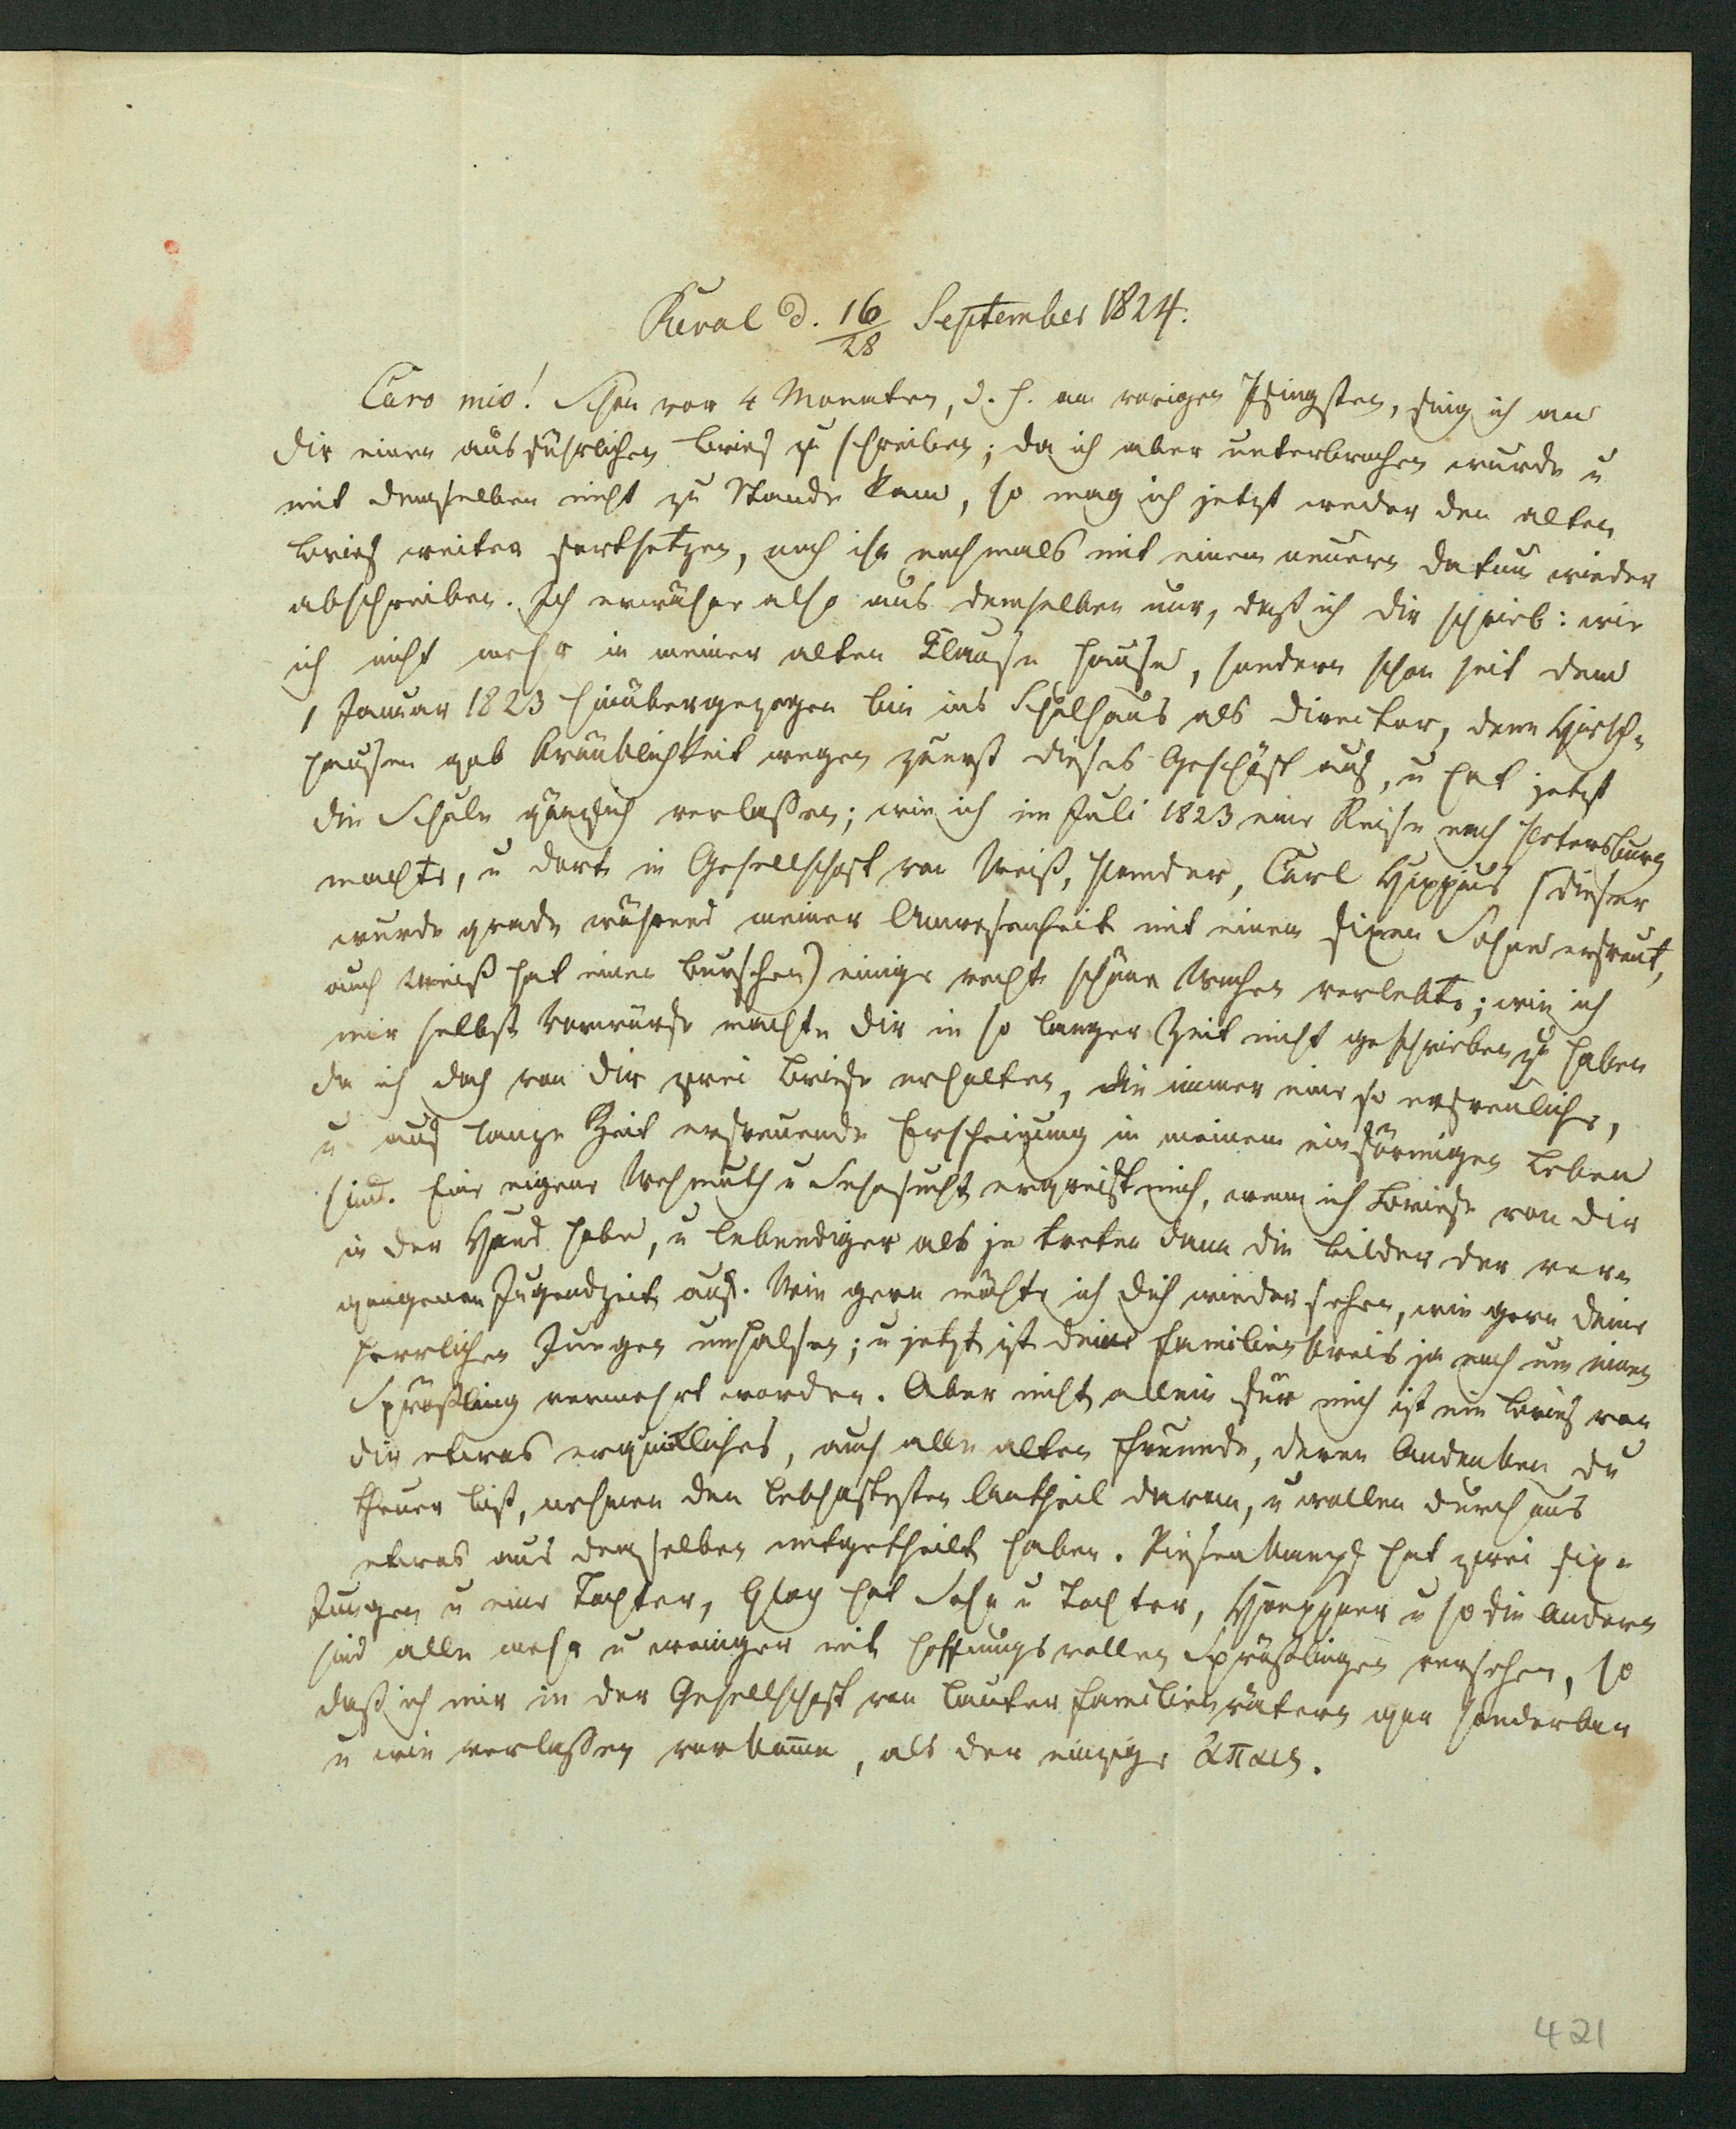 Reval d. 16/28 September 1824.
Caro mio! Schon vor 4 Monaten, d. h. am vorigen Pfingsten, fing ich an
Dir einen ausführlichen Brief zu schreiben; da ich aber unterbrochen wurde u
mit demselben nicht zu Stande kam, so mag ich jetzt weder den alten
Brief weiter fortsetzen, noch ihn nochmals mit einem neuern Datum wieder
abschreiben. Ich erwähne also aus demselben nur, daß ich Dir schrieb: wie
ich nicht mehr in meiner alten Klause hause, sondern schon seit dem
1 Januar 1823 hinübergezogen bin ins Schulhaus als Director, denn Hirsch-
hausen gab Kränklichkeit wegen zuerst dieses Geschäft auf, u hat jetzt
die Schule gänzlich verlaßen; wie ich im Juli 1823 eine Reise nach Petersburg
machte, u dort in Gesellschaft von Weiß, Pander, Carl Hippius (dieser
wurde grade während meiner Anwesenheit mit einem fixen Sohne erfreut,
auch Weiß hat einen Burschen) einige recht schöne Wochen verlebte; wie ich
mir selbst Vorwürfe machte Dir in so langer Zeit nicht geschrieben zu haben
da ich doch von Dir zwei Briefe erhalten, die immer eine so erfreuliche,
u auf lange Zeit erfreuende Erscheinung in meinem einförmigen Leben
sind. Eine eigene Wehmuth u Sehnsucht ergreift mich, wenn ich Briefe von Dir
in der Hand habe, u lebendiger als je treten dann die Bilder der ver-
gangenen Jugendzeit auf. Wie gern möchte ich Dich wieder sehen, wie gern Deine
herrlichen Jungen umhalsen; u jetzt ist Deine Familienkreis ja noch um einen
Sprößling vermehrt worden. Aber nicht allein für mich ist ein Brief von
Dir etwas erquickliches, auch alle alten Freunde, deren Andenken Du
theuer bist, nehmen den lebhaftesten Antheil daran, u wollen durchaus
etwas aus demselben mitgetheilt haben. Riesenkampf hat zwei fixe
Jungen u eine Tochter, Gloy hat Sohn u Tochter, Hoeppner u so die Andern
sind alle mehr u weniger mit hoffnungsvollen Sprößlingen versehen, so
daß ich mir in der Gesellschaft von lauter Familienvätern gar sonderbar
u wie verlaßen vorkomme, als der einzige ἄπαις.
421